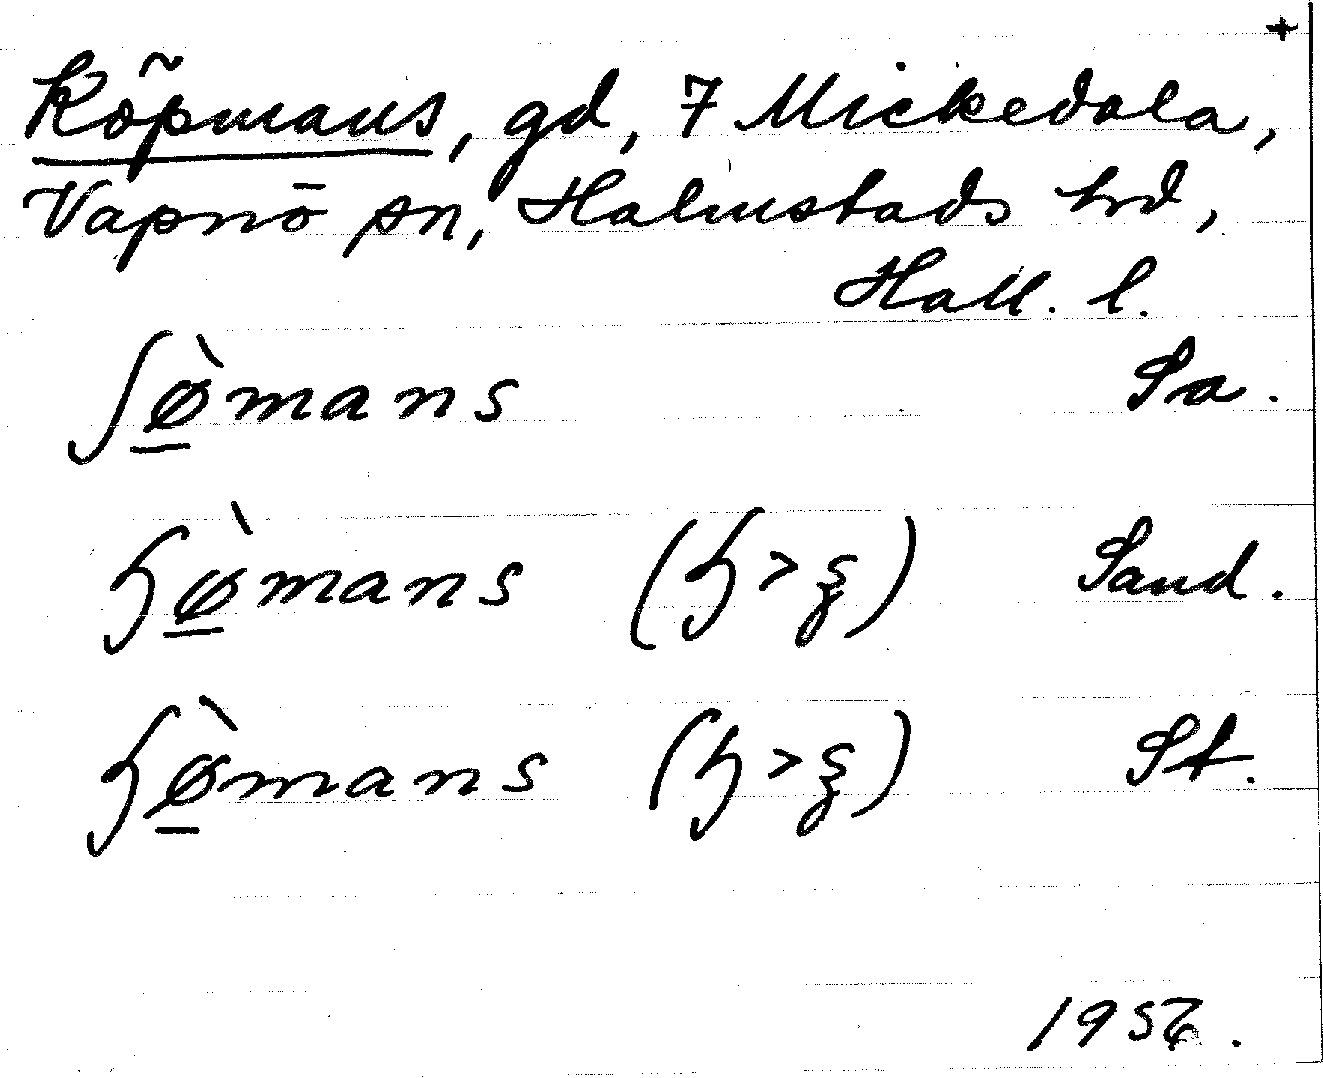 +
Köpmans, gd, 7 Mickedala,
Vapnö sn, Halmstads hrd,
Hall. l.
ʃø̱̀mans Sa.
ɧø̱̀mans (ɧ>ʂ) Sand.
ɧø̱̀mans (ɧ>ʂ) St.